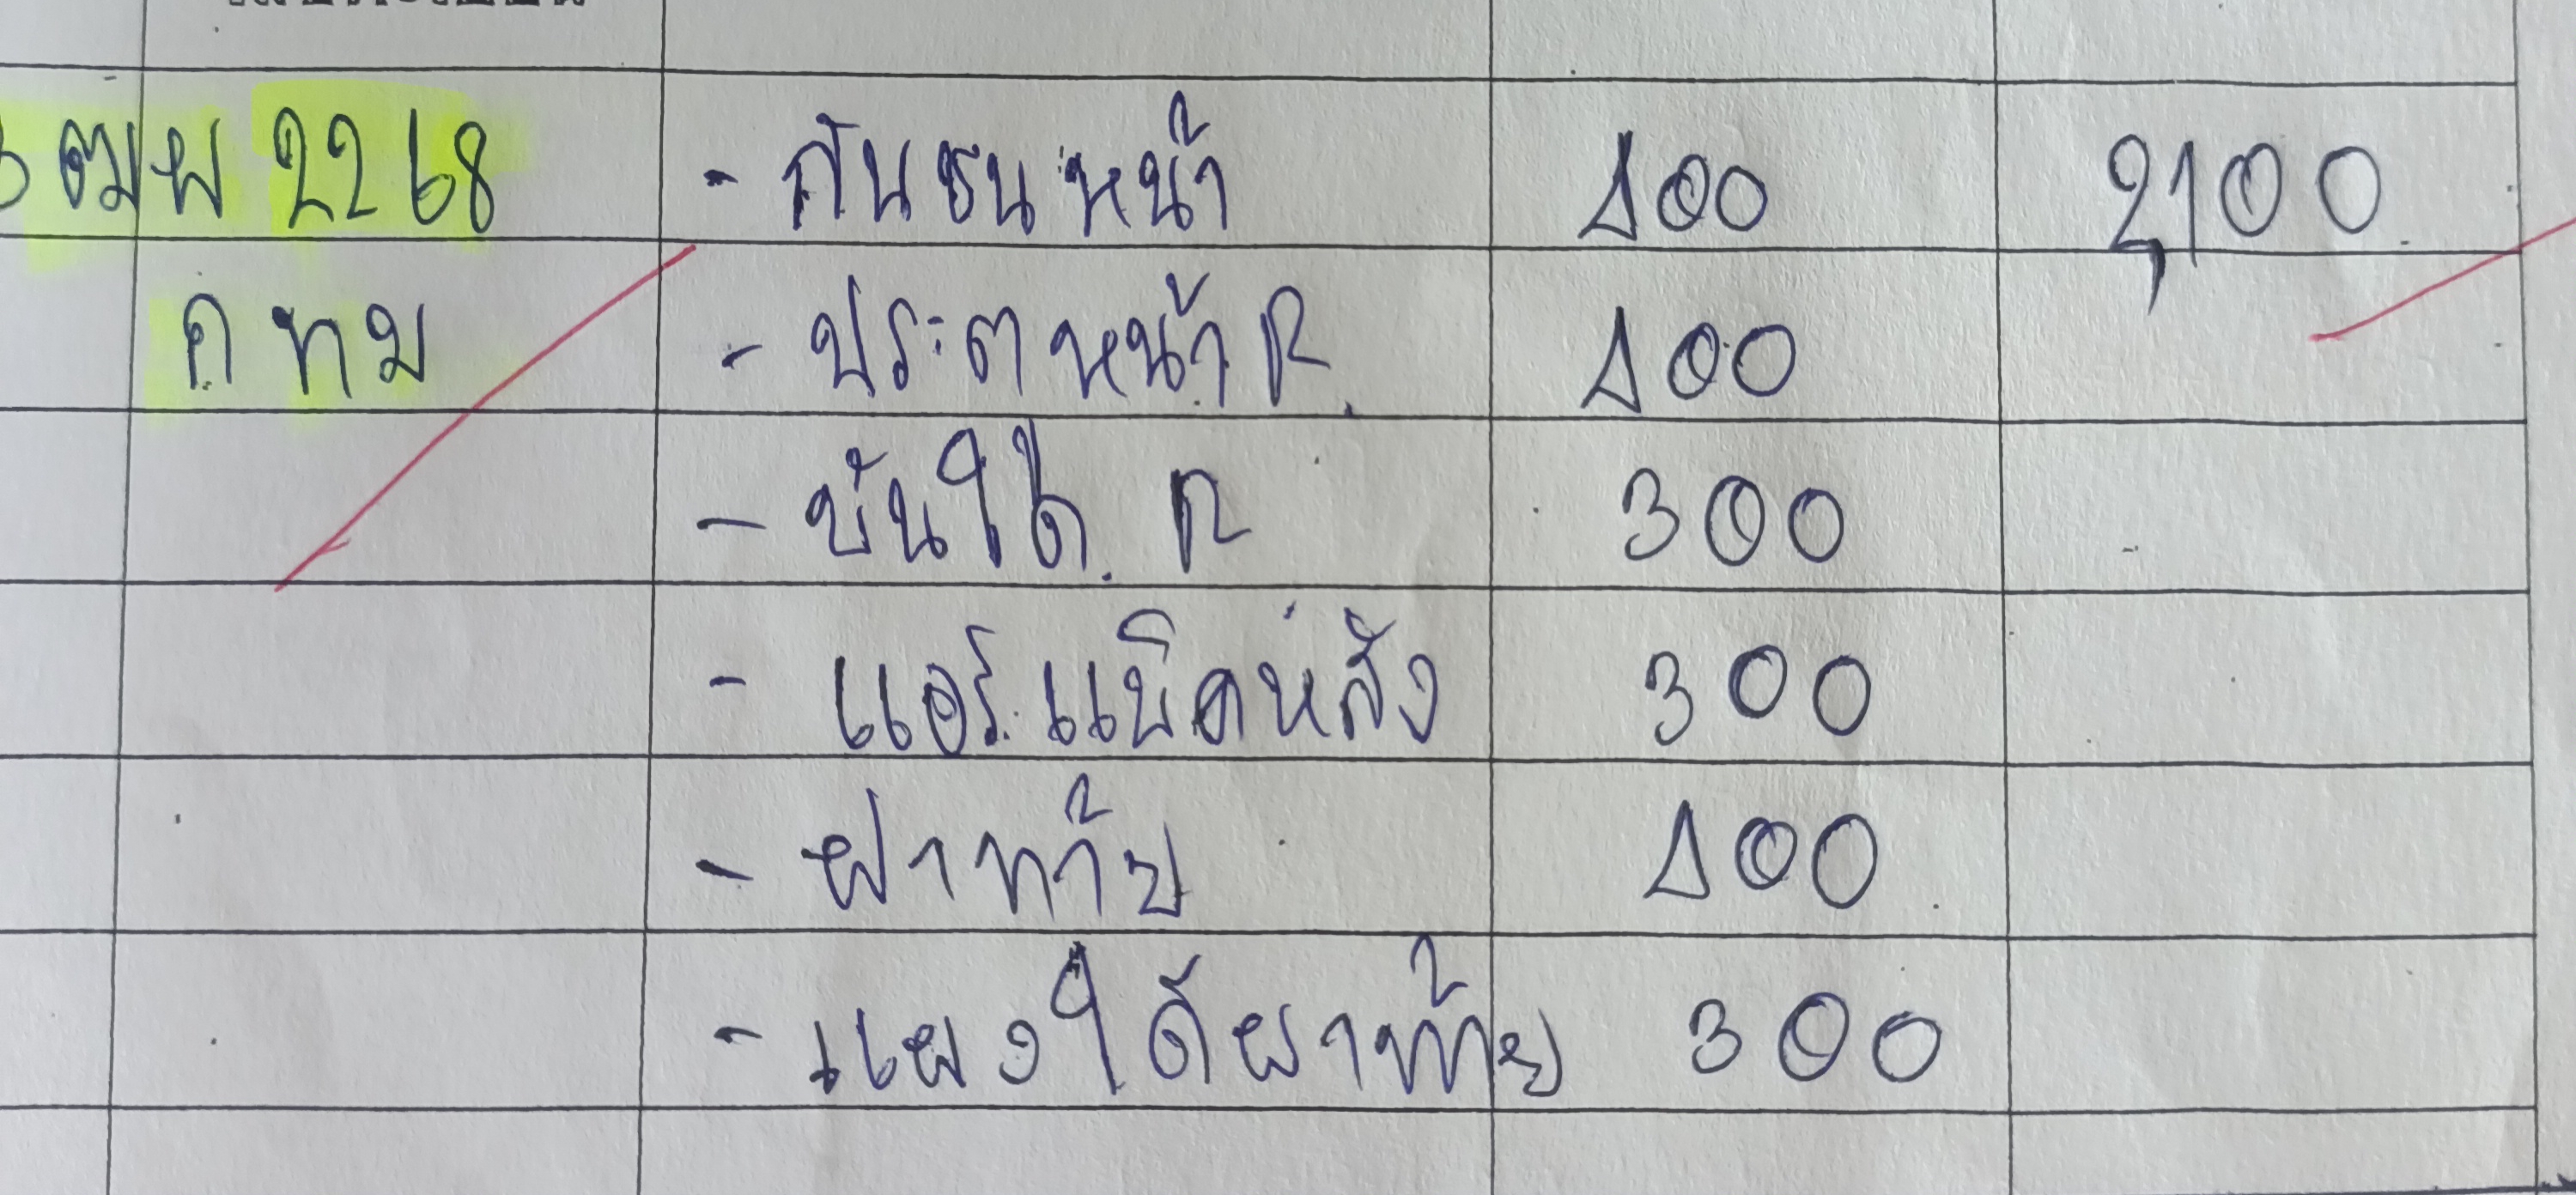 ตมผ 2268 - กันชนหน้า 400 2,100
กทม - ประตหน้า R. 400
- บันใด R 300
- แอร์แบ็คหลัง 300
- ฝาท้าย 400
- แผงใต้ฝาท้าย 300